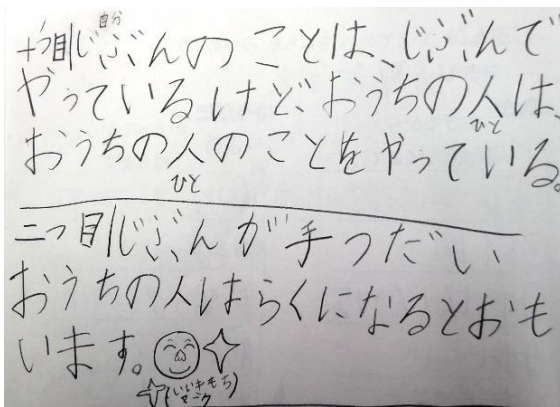 自分
一つ目じぶんのことは、じぶんで
やっているけど、おうちの人は、
ひと
おうちの人のことをやっている。
ひと
二つ目じぶんが手つだい
おうちの人はらくになるとおも
います。
(いいきもち
マーク)